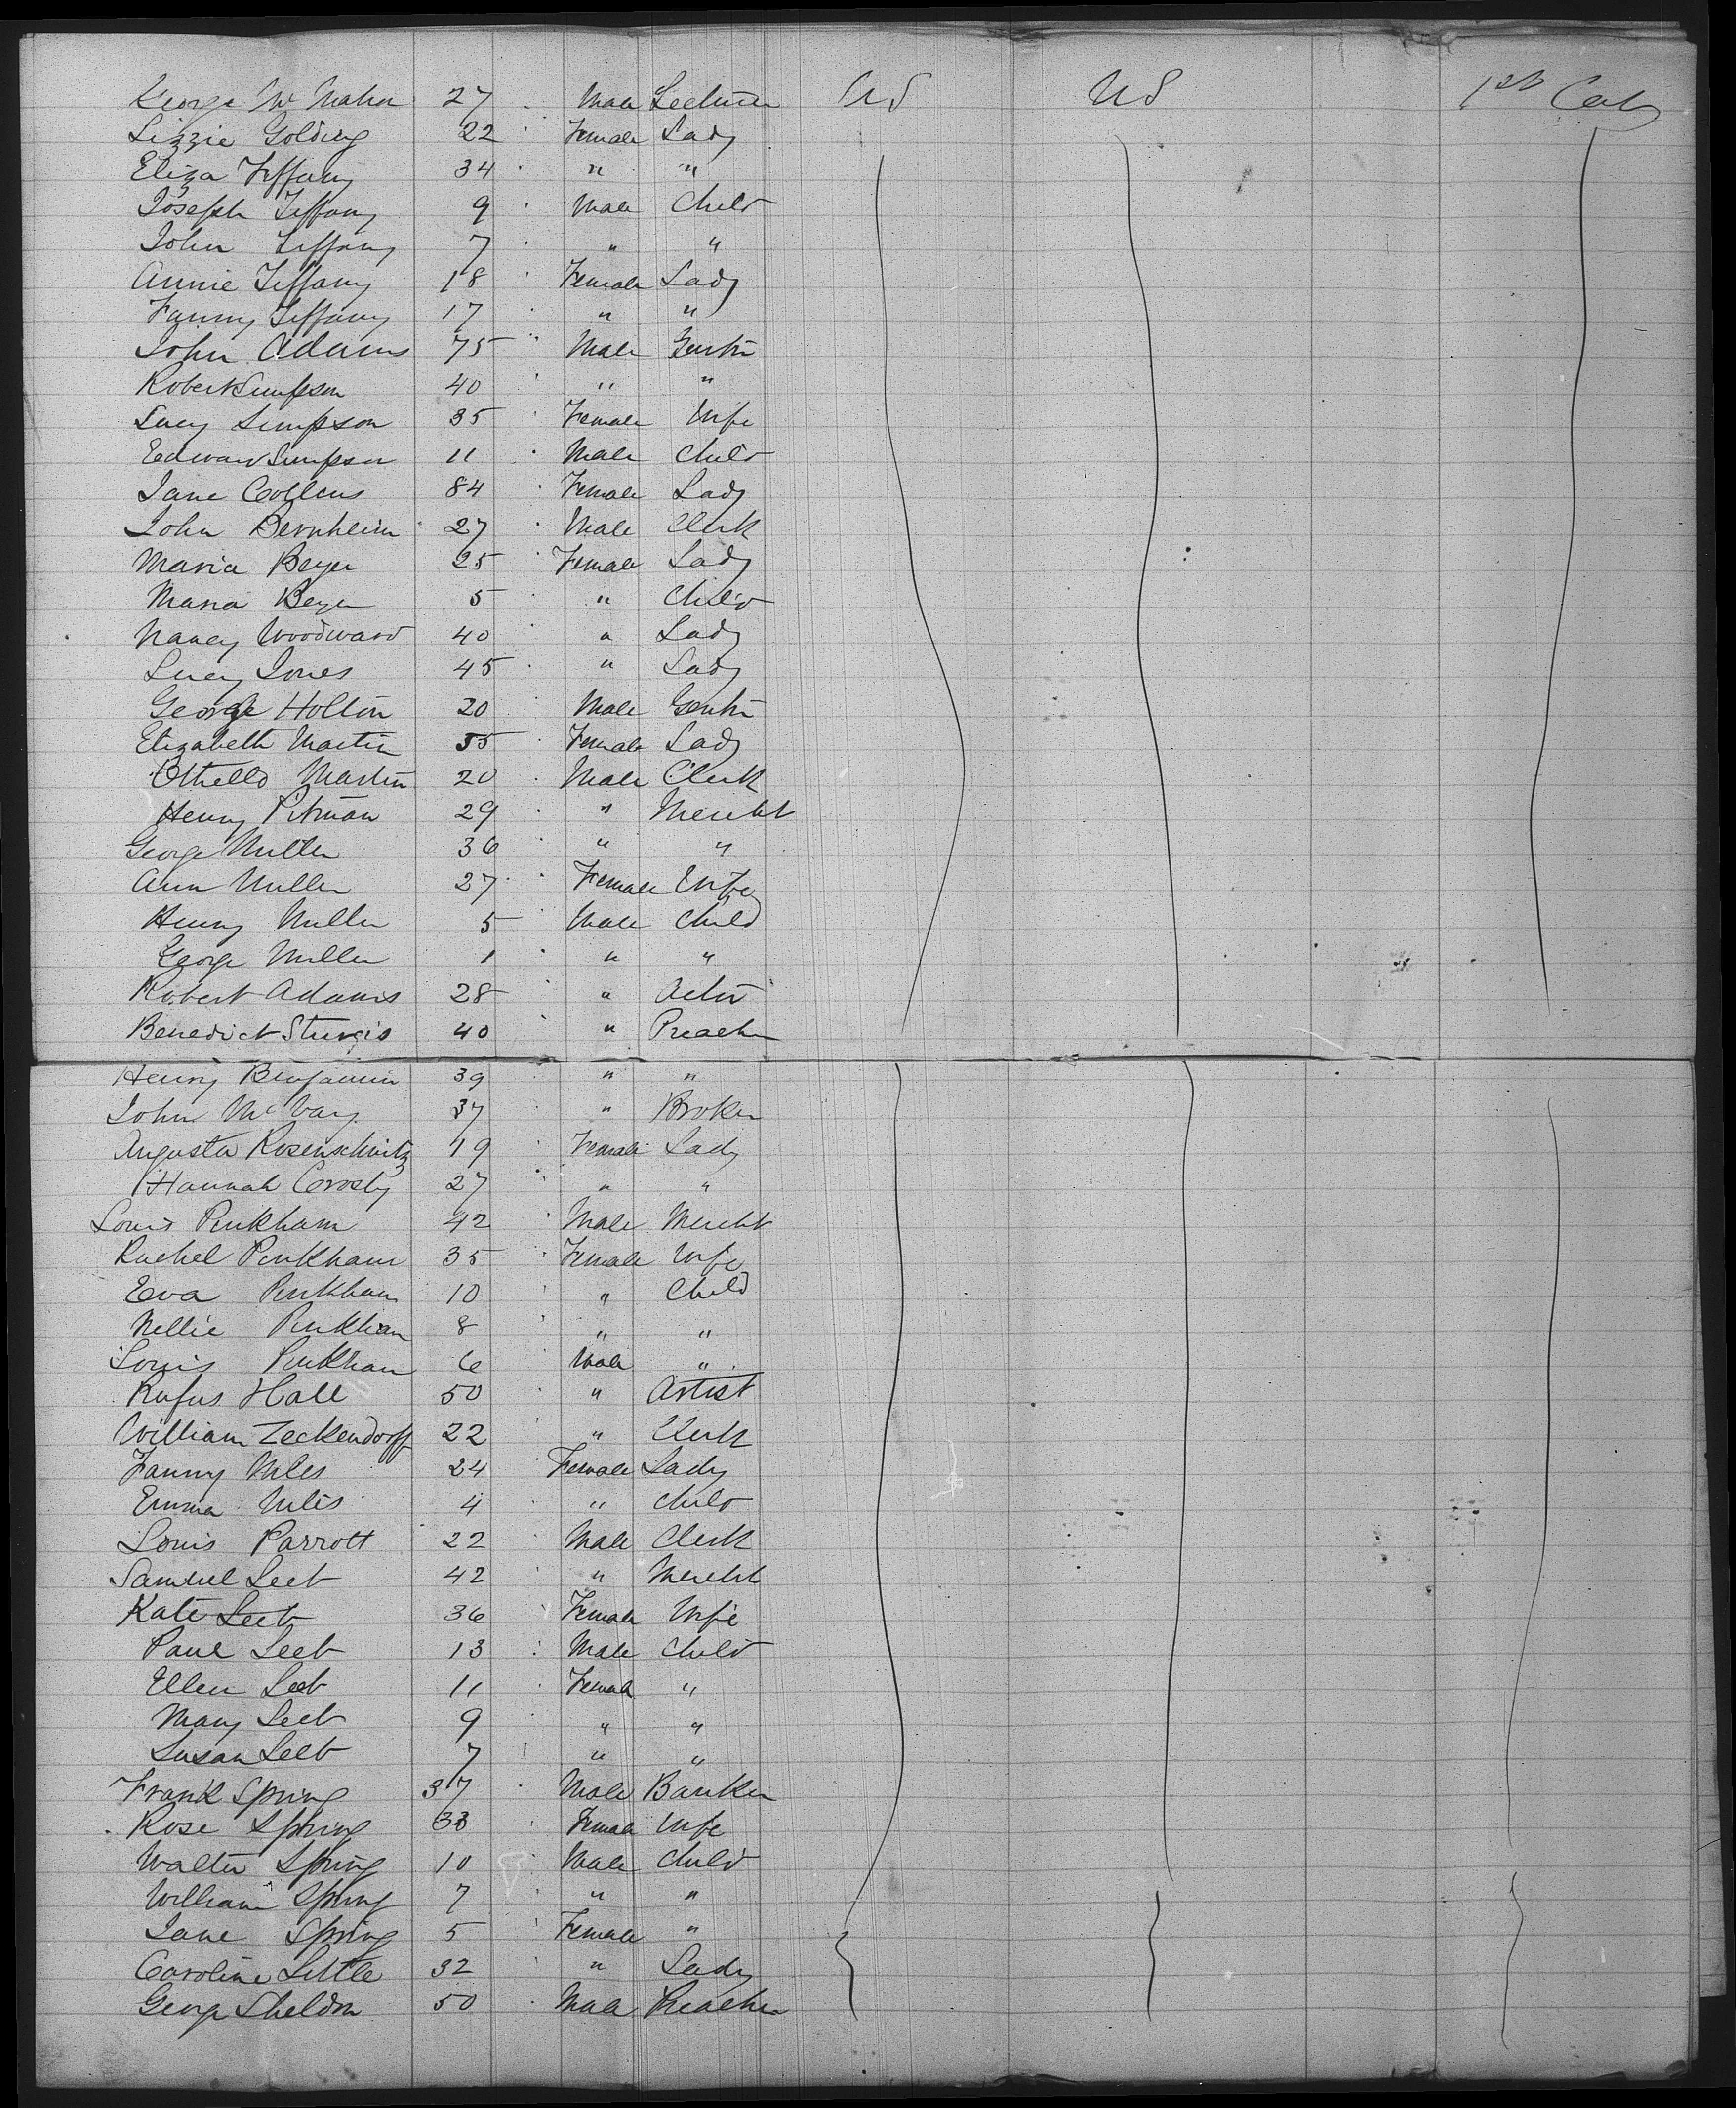 George Mc Mahon 27 Male Lecturer US US 1st Cab
Lizzie Golding 22 Female Lady
Eliza Tiffany 34 " "
Joseph Tiffany 9 Male Child
John Tiffany 7 " "
Annie Tiffany 18 Female Lady
Fanny Tiffany 17 " "
John Adams 75 Male Gentn
Robert Simpson 40 " "
Lucy Simpson 35 Female Wife
Edward Simpson 11 Male Child
Jane Collens 84 Female Lady
John Bernheim 27 Male Clerk
Maria Beyer 25 Female Lady
Maria Beyer 5 " Child
Nancy Woodward 40 " Lady
Lucy Jones 45 " Lady
George Holton 20 Male Gentn
Elizabeth Martin 55 Female Lady
Othello Martin 20 Male Clerk
Henry Pitman 29 " Mercht
George Miller 36 " "
Ann Miller 27 Female Wife
Henry Miller 5 Male Child
George Miller 1 " "
Robert Adams 28 " Actor
Benedict Sturgis 40 " Preacher
Henry Benjamin 39 " "
John McVay 37 " Broker
Augusta Rosenschwitz 19 Female Lady
Hannah Crosby 27 " "
Louis Pinkham 42 Male Mercht
Rachel Pinkham 35 Female Wife
Eva Pinkham 10 " Child
Nellie Pinkham 8 " "
Louis Pinkham 6 Male "
Rufus Hall 50 " Artist
William Zeckendorff 22 " Clerk
Fanny Niles 24 Female Lady
Emma Niles 4 " Child
Louis Parrott 22 Male Clerk
Samuel Leet 42 " Mercht
Kate Leet 36 Female Wife
Paul Leet 13 Male Child
Ellen Leet 11 Female "
Mary Leet 9 " "
Susan Leet 7 " "
Frank Spring 37 Male Banker
Rose Spring 33 Female Wife
Walter Spring 10 Male Child
William Spring 7 " "
Jane Spring 5 Female "
Caroline Little 32 " Lady
George Sheldon 50 Male Preacher